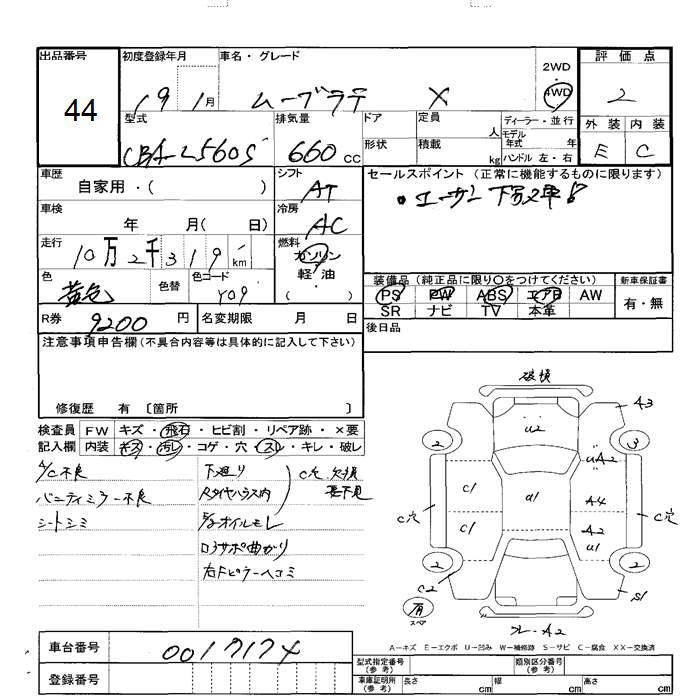 出品番号 初度登録年月 車名・グレード 2WD 評価点
44 19 1月 ムーブラテ X 4WD 2
型式 排気量 ドア 定員 人 ディーラー・並行 外装 内装
CBA-L560S 660cc 形状 積載 kg モデル年式 年 E C
ハンドル 左・右
車歴 シフト セールスポイント (正常に機能するものに限ります)
自家用・( ) AT
車検 冷房
年 月( 日) AC
走行 燃料
10万2千319km ガソリン
軽・油
( )
色 色替 色コード 装備品 (純正品に限り〇をつけてください) 新車保証書
黄色 Y09 PS PW ABS エアB AW 有・無
SR ナビ TV 本革
R券 9200円 名変期限 月 日 後日品
注意事項申告欄(不具合内容等は具体的に記入して下さい)
修復歴 有 〔箇所 〕
検査員 FW キズ・飛石・ヒビ割・リペア跡・×要
記入欄 内装 キズ・汚レ・コゲ・穴・スレ・キレ・破レ
A/C不良 下廻り C穴 欠損
バニティミラー不良 Rタイヤハウス内 要下見
シートシミ E/gオイルモレ
ロアサポ曲がり
右Fピラーヘコミ
破損
A3
u2
2 3
uA2
C1 a1 A4
C穴 C1 A2 C穴
u1
2 2
C2 S1
有
スペア
フレ-A2
A−キズ E−エクボ U−凹み W−補修跡 S−サビ C−腐食 XX−交換済
車台番号 0017174
型式指定番号(参考) 類別区分番号(参考)
登録番号 車庫証明用(参考) 長さ cm 幅 cm 高さ cm